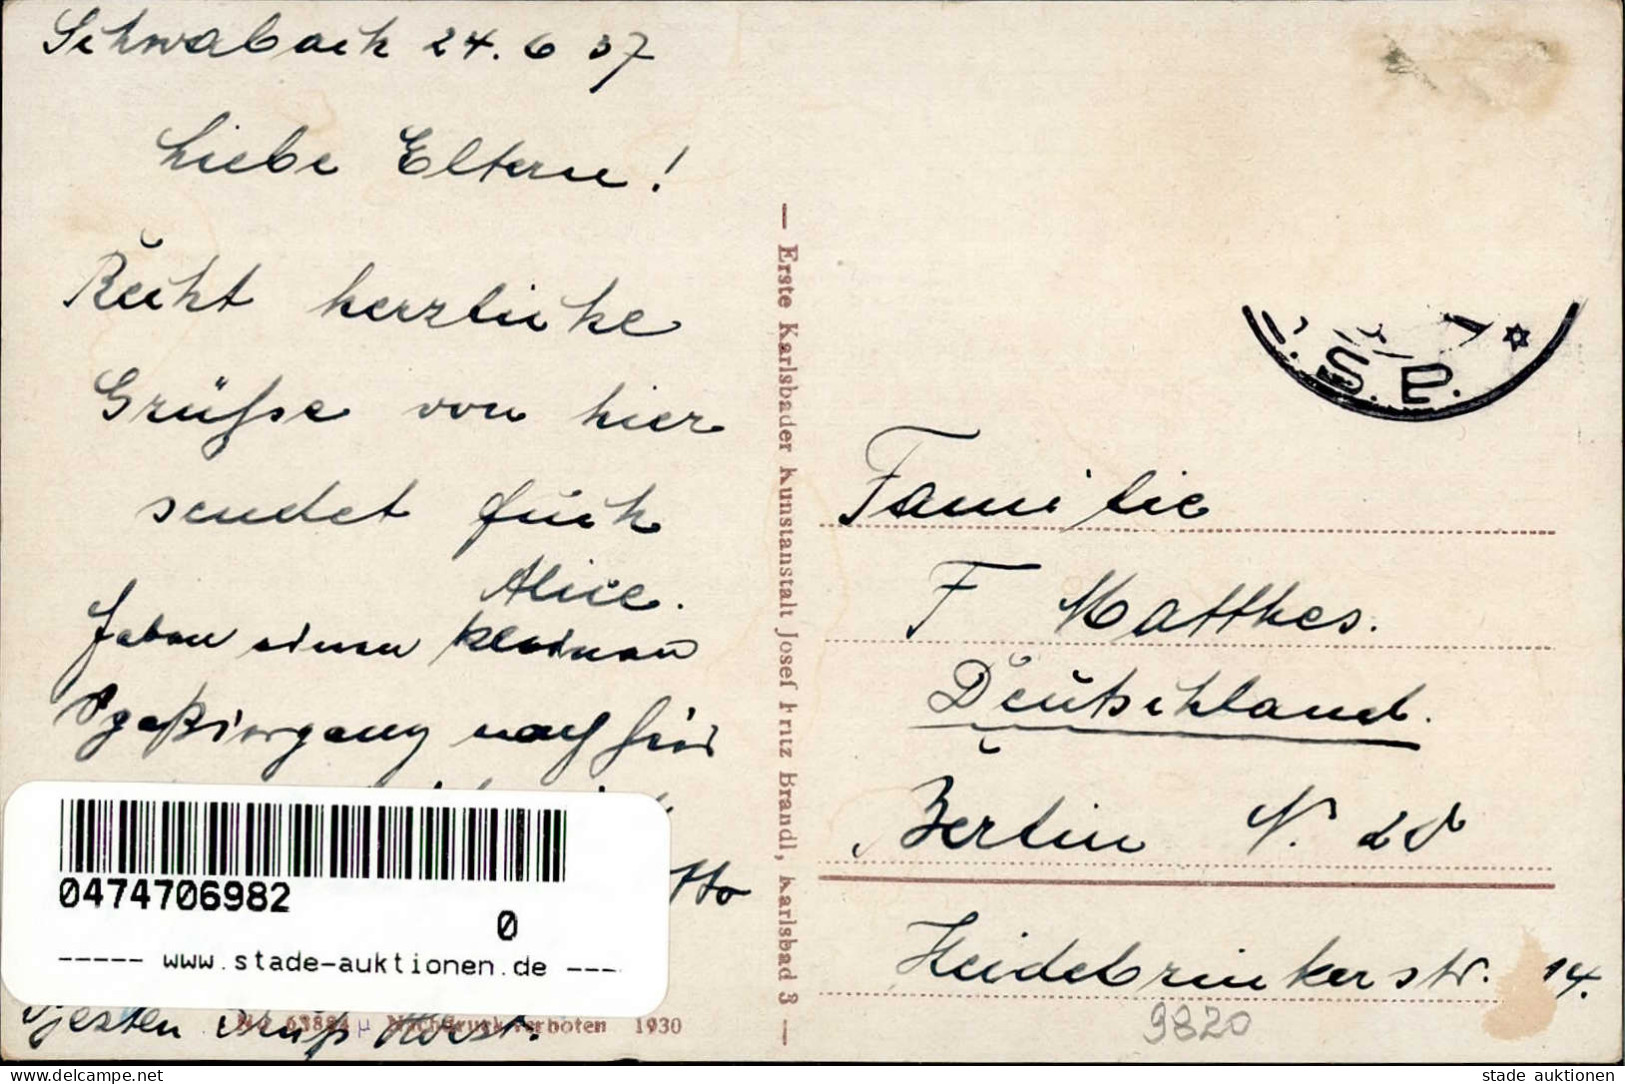 Schwabach 24. 6 37
Liebe Eltern!
Recht herzliche
Grüße von hier
sendet Euch
Alice.
Haben einen kleinen
Spaziergang nach hier
0474706982
0
----- www.stade-auktionen.de ----
Otto
besten Gruß Horst.
No 63884 Nachdruck verboten 1930
— Erste Karlsbader Kunstanstalt Josef Fritz Brandl, Karlsbad 3 —
S. P.
Familie
F Matthes.
Deutschland.
Berlin N. 20
Heidebrinkerstr. 14.
9820
www.delcampe.net
stade auktionen